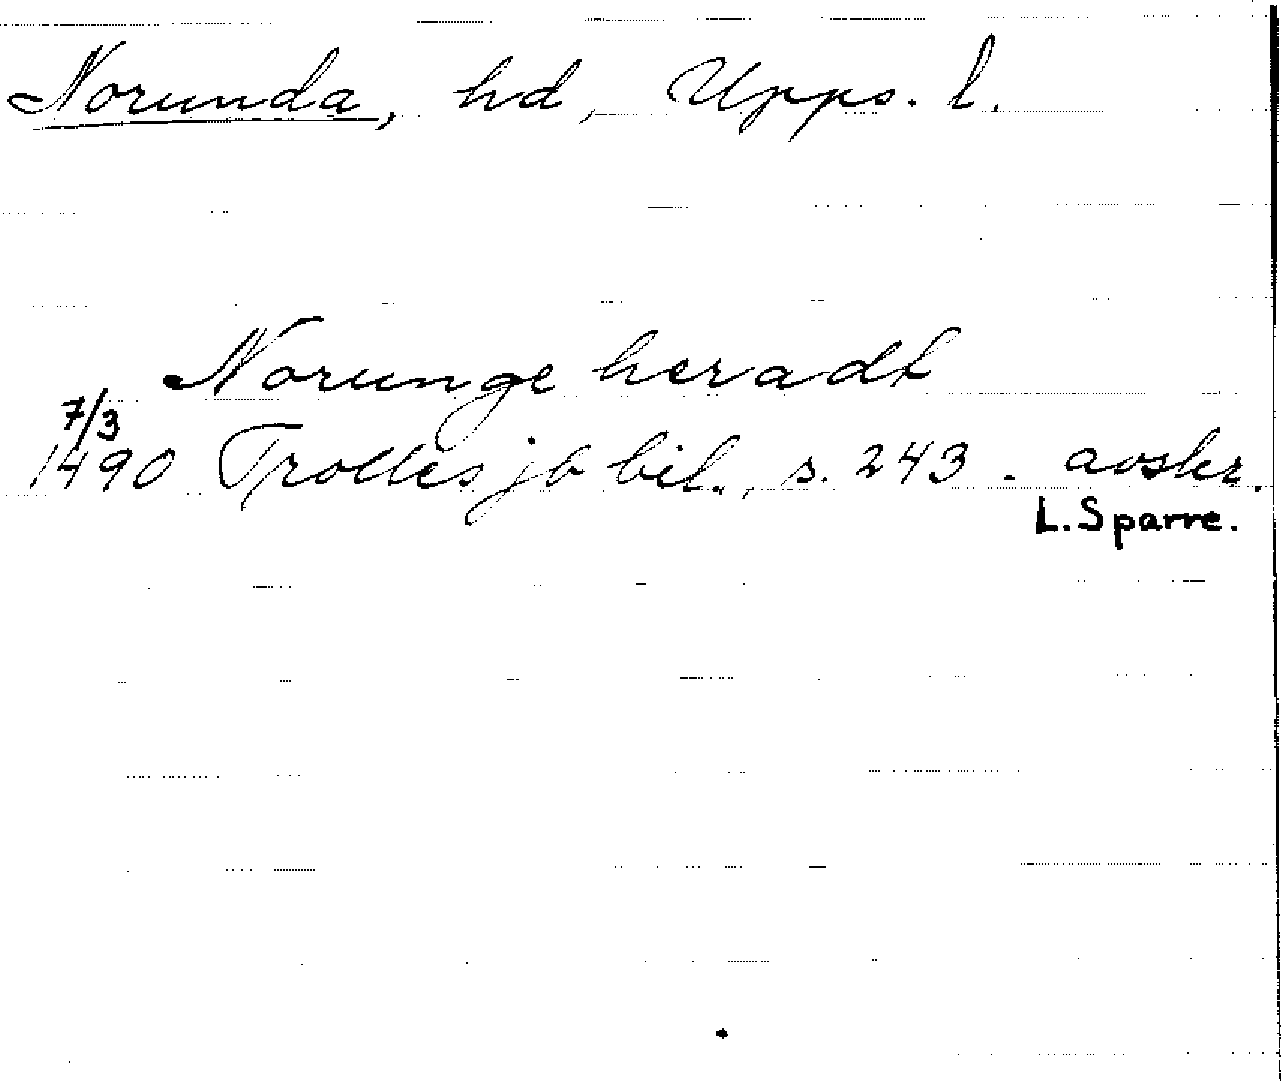 Norunda, hd, Upps. l.
Norunge heradt
7/3
1490 Trolles jb bil., s. 243. avskr.
L. Sparre.